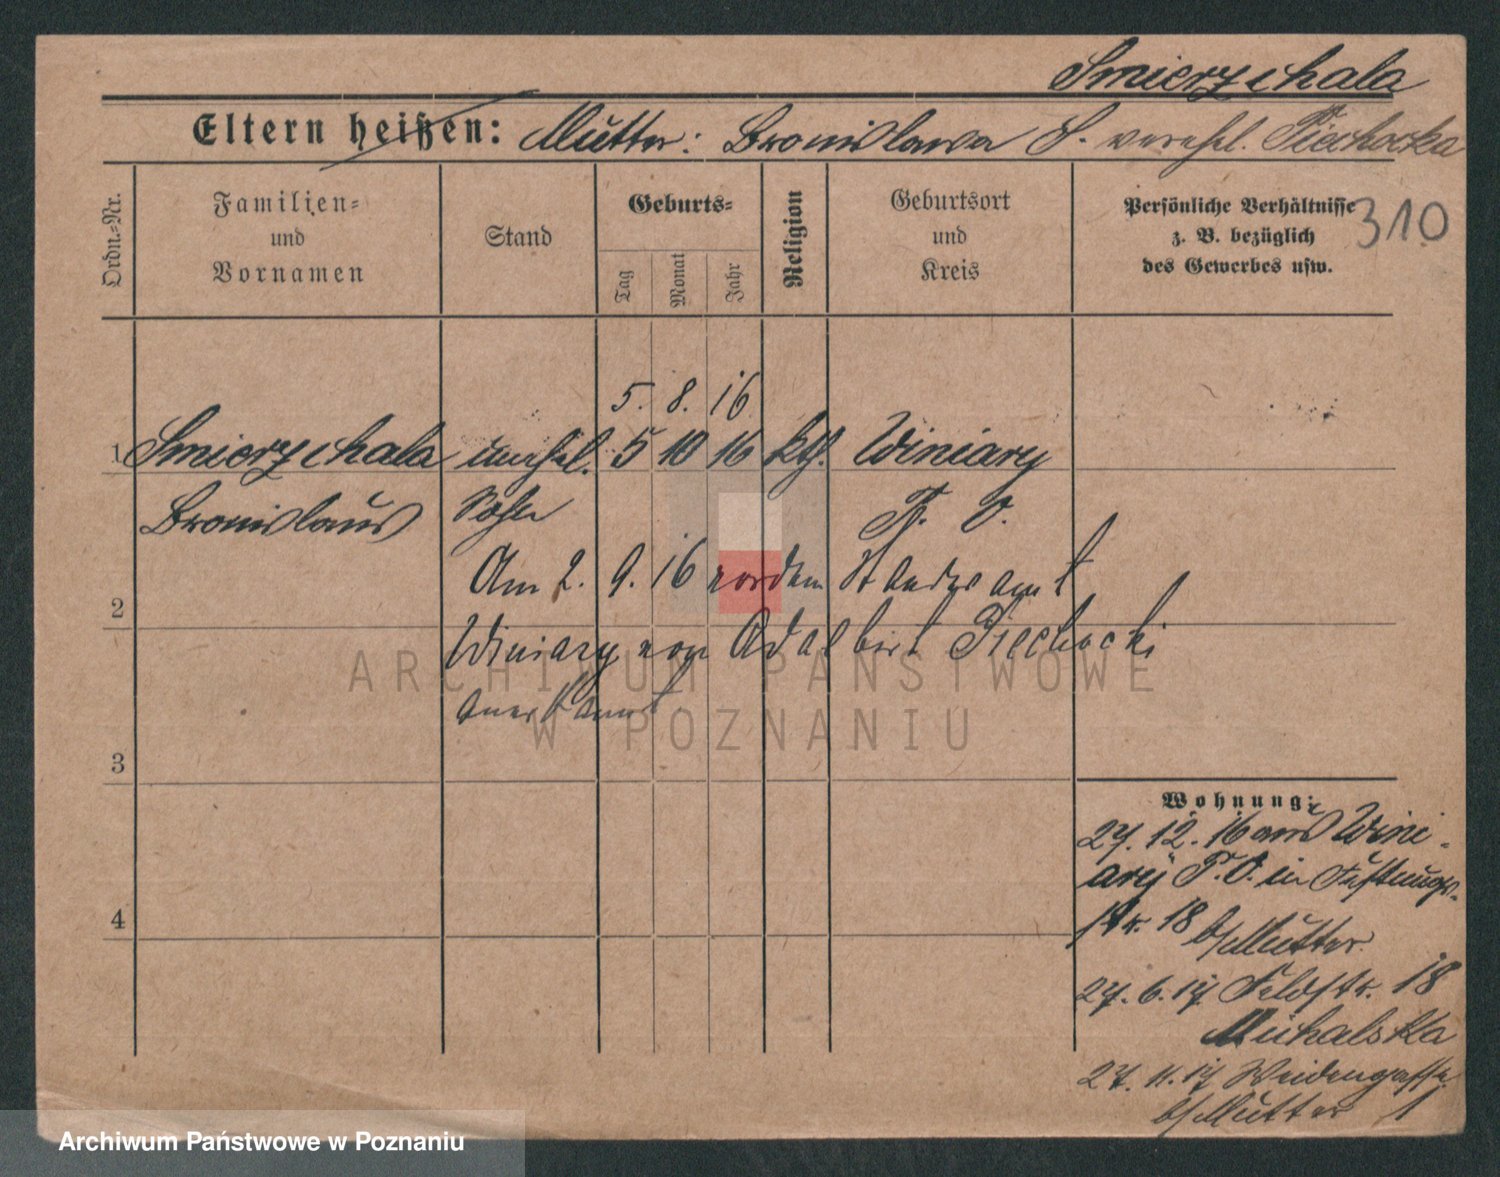 Smierzchala
Eltern heißen: Mutter: Bronislawa S. verehel. Piechocka
Ordn.-Nr.
Familien-
und
Vornamen
Stand
Geburts-
Tag
Monat
Jahr
Religion
Geburtsort
und
Kreis
Persönliche Verhältnisse
z. B. bezüglich
des Gewerbes usw.
310
5. 8. 16
1 Smierzchala unehel. 5 10 16 kth. Winiary
Bronislaus Sohn P. O.
Am 2. 9. 16 vor dem Standesamt
2
Winiary von Adalbert Piechocki
anerkannt
3
4
Wohnung:
27. 12. 16 aus Wini-
ary P. O. in Festungs-
str. 18 b/Mutter
27. 6. 17 Feldstr. 18
Michalska
27. 11. 17 Weidengasse
b/Mutter 1
ARCHIWUM PAŃSTWOWE
W POZNANIU
Archiwum Państwowe w Poznaniu